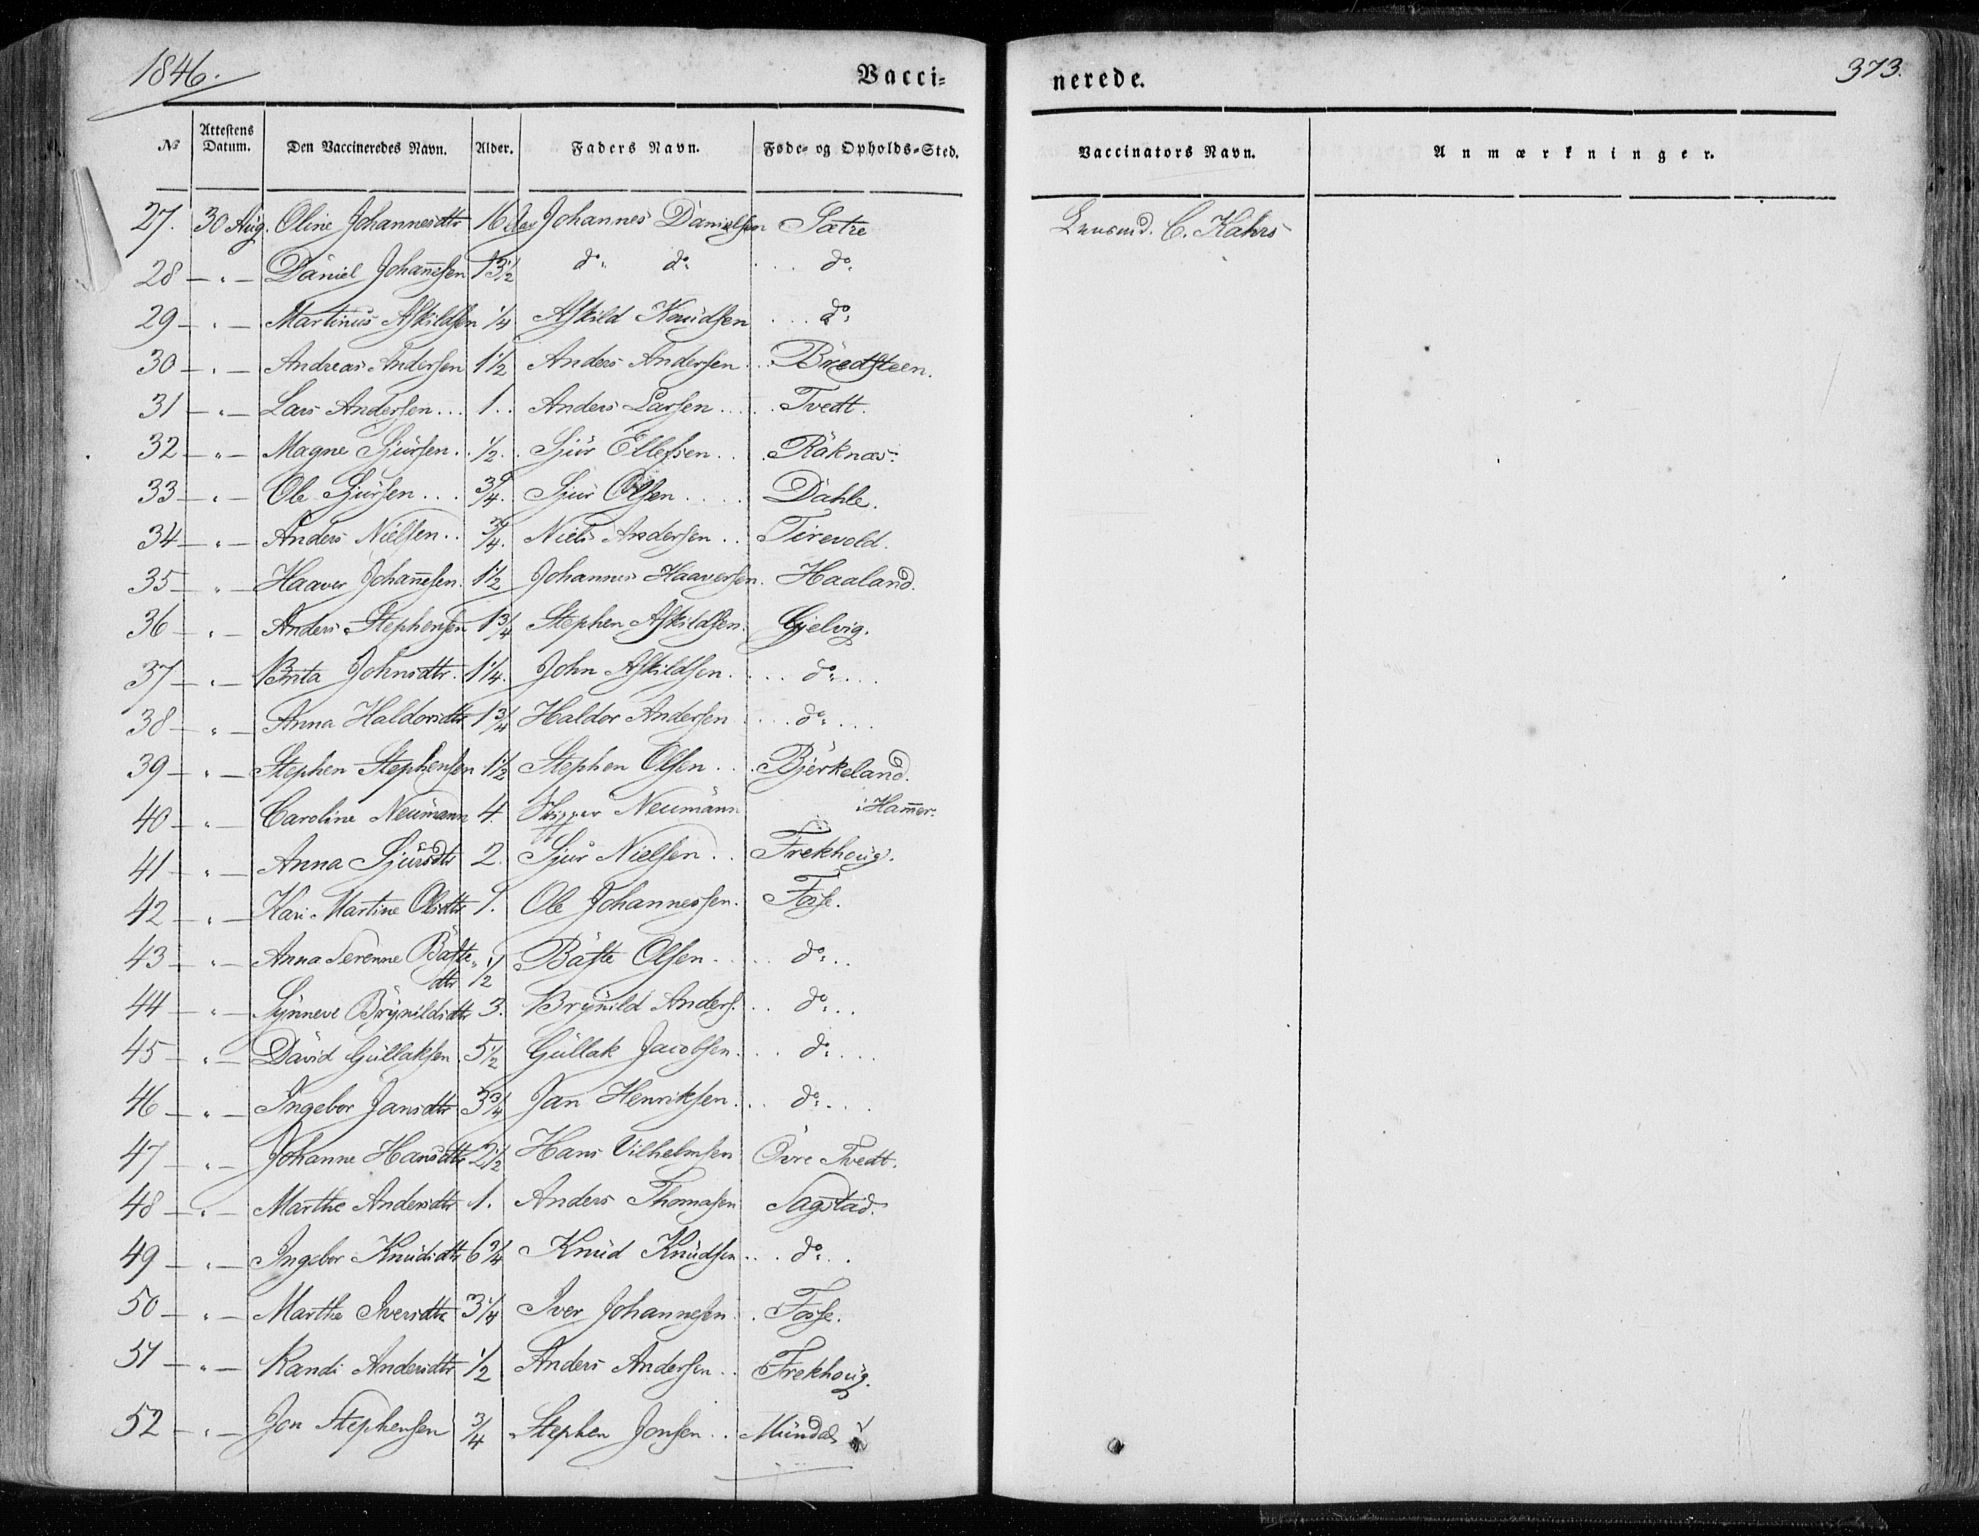 1846.
Vacci= nerede.
373.
No Attestens Datum. Den Vaccineredes Navn. Alder. Faders Navn. Føde- og Opholds-Sted. Vaccinators Navn. Anmærkninger.
27. 30 Aug. Oline Johannesdtr 16 Johannes Danielsen Sætre C. Kahrs
28 — " — Daniel Johan̄esen 13½ do: do: do:
29 — " — Martinus Askildsen ¼ Askild Knudsen do:
30 — " — Andreas Andersen 1½ Anders Andersen Bredsteen.
31 — " — Lars Andersen 1. Anders Larsen Tvedt.
32 — " — Magne Sjursen ½. Sjur Ellefsen Raknæs.
33 — " — Ole Sjursen ¾. Sjur Olsen Dahle.
34 — " — Anders Nielsen ¾. Niels Andersen Tirevold.
35 — " — Haaver Johan̄esen. 1½ Johannes Haaversen. Haaland.
36 — " — Anders Stephensen 1¾ Stephen Askildsen. Gjelvig.
37 — " — Brita Johnsdtr. 1¼. John Askildsen. do:
38 — " — Anna Haldorsdtr 1¾ Haldor Andersen do:
39 — " — Stephen Stephensen 1½ Stephen Olsen Bjerkeland.
40 — " — Caroline Neumann 4. Skipper Neumann Ham̄er.
41 — " — Anna Sjursdtr 2. Sjur Nielsen Frekhoug.
42 — " — Kari Martine Olsdtr 1. Ole Johannessen. Fosse.
43 — " — Anna Serenne Baste- ½ Baste Olsen do:
dtr
44 — " — Synneve Brynildsdtr 3. Brynild Anders. do:
45 — " — David Gullaksen 5½ Gullak Jacobsen. do:
46 — " — Ingebor Jansdtr 3¾ Jan Henriksen. do:
47 — " — Johanne Hansdtr 2½ Hans Vilhelmsen Øvre Tvedt.
48 — " — Marthe Andersdtr 1. Anders Thomasen Sagstad.
49 — " — Ingebor Knudsdtr 6¾ Knud Knudsen do:
50 — " — Marthe Iversdtr 3¼ Iver Johannesen Fosse.
51 — " — Randi Andersdtr ½ Anders Andersen Frekhoug.
52 — " — Jon Stephensen ¾ Stephen Jonsen Mundal